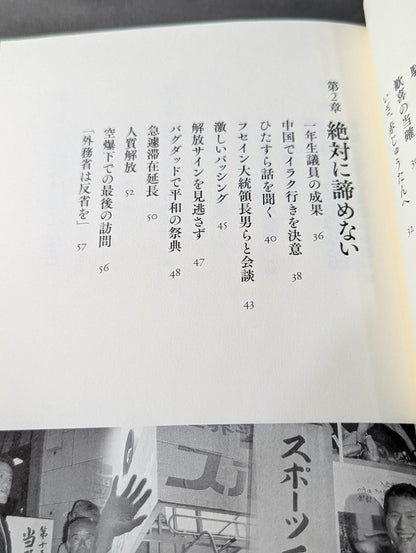 歓喜の当確
いざ、赤じゅうたんへ
32
第2章 絶対に諦めない
一年生議員の成果 36
中国でイラク行きを決意 38
ひたすら話を聞く 40
フセイン大統領長男らと会談 43
激しいバッシング 45
解放サインを見逃さず 47
バグダッドで平和の祭典 48
急遽滞在延長 50
人質解放 52
空爆下での最後の訪問 56
「外務省は反省を」 57
スポーツ